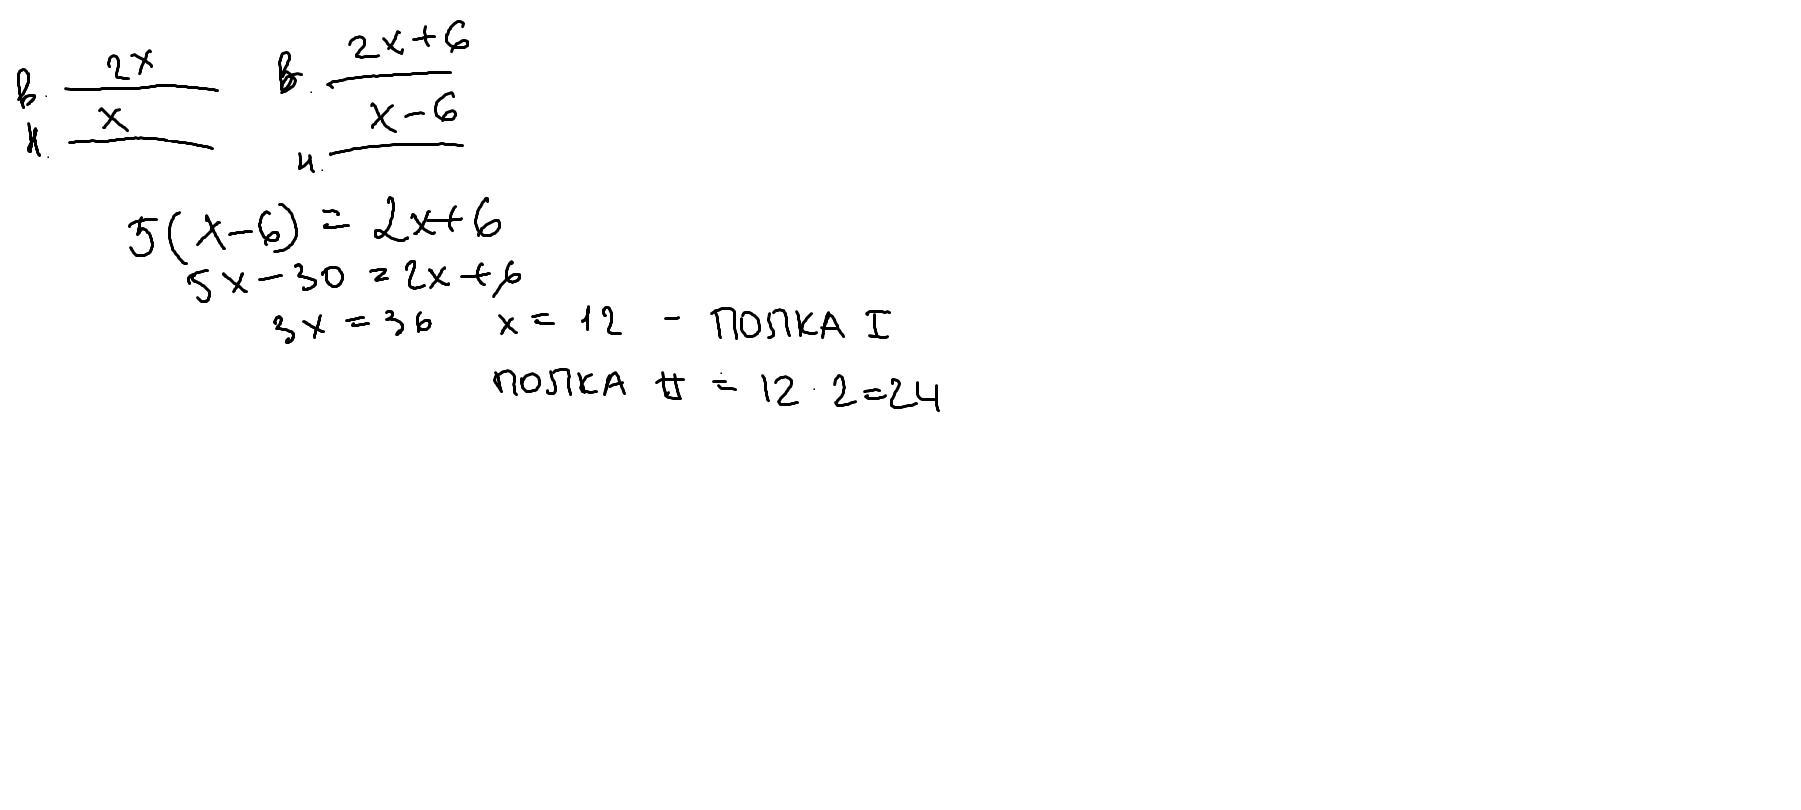 в. 2x в. 2x+6
н. x н. x-6
5(x-6) = 2x+6
5x-30 = 2x+6
3x = 36 x = 12 - ПОЛКА I
ПОЛКА II = 12 · 2 = 24